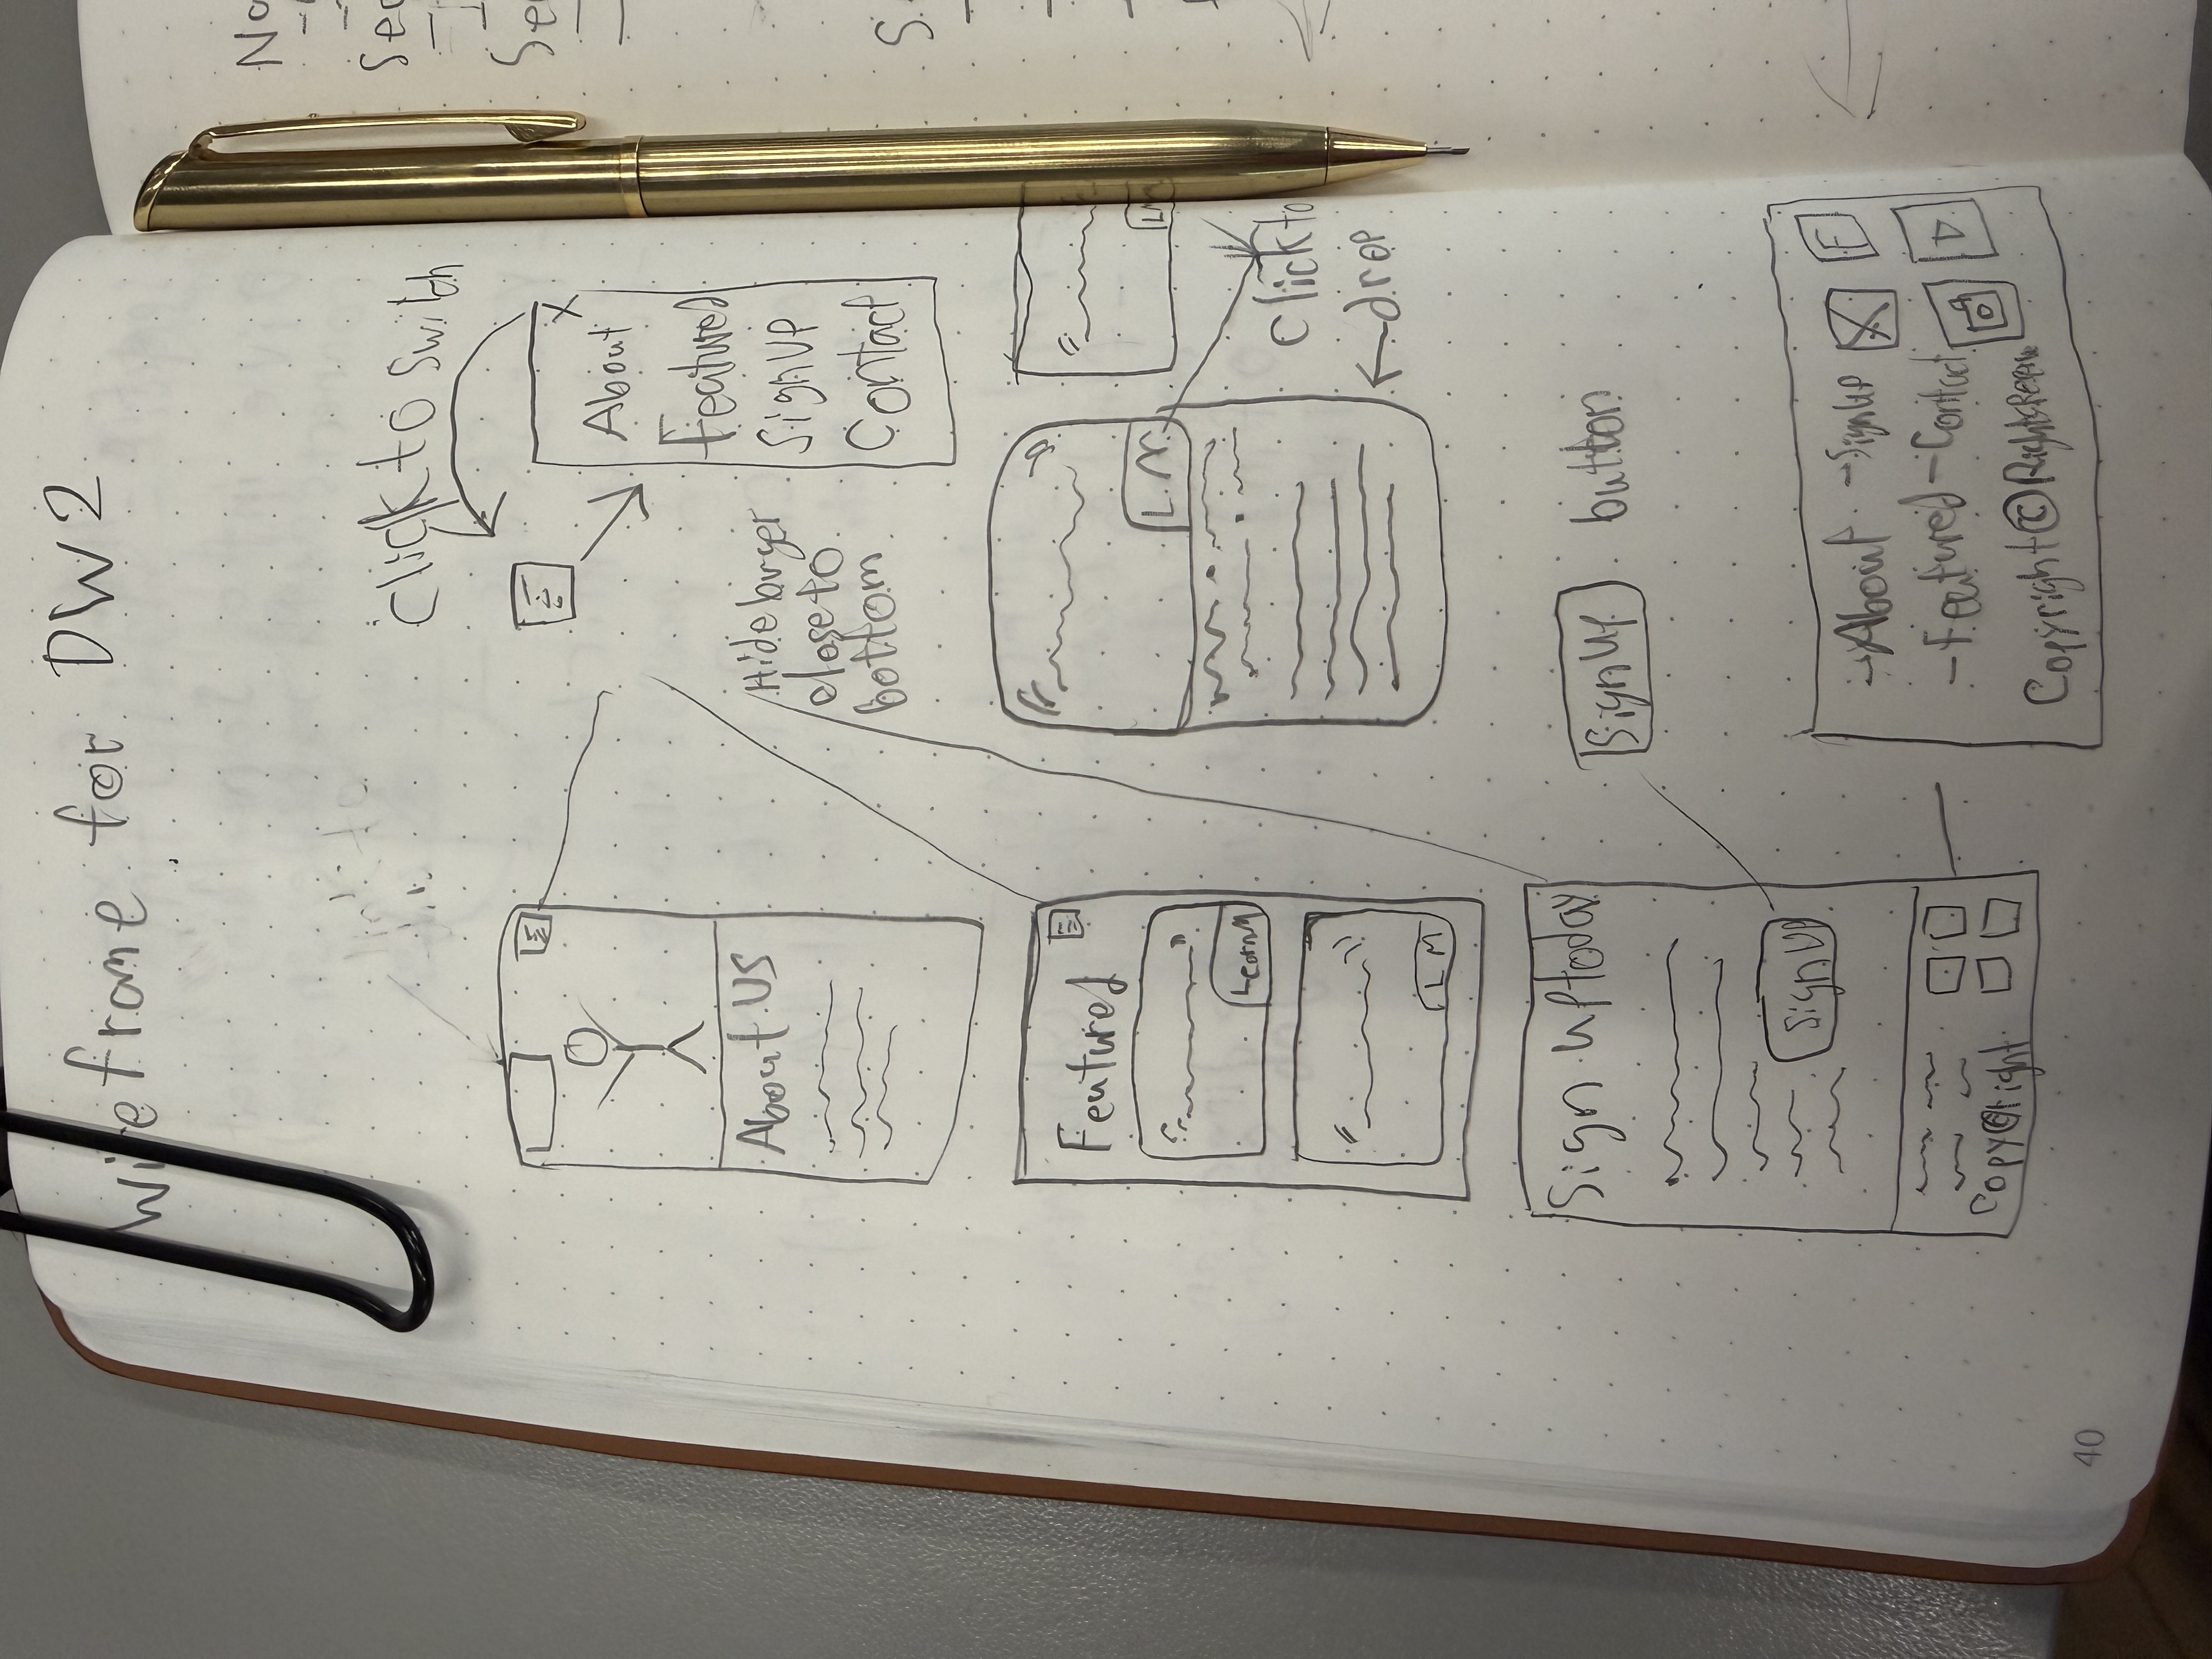 Wireframe for DW2
Click to switch
X
About
Featured
Sign UP
Contact
About US
Hide burger
close to
bottom
Featured
Learn M
L M
L. M.
LM
Click to
drop
Sign up today
Sign UP
Sign UP button
Copy©right
→About →Sign UP X F
-Featured -Contact
Copyright © Rights
40
No
Se